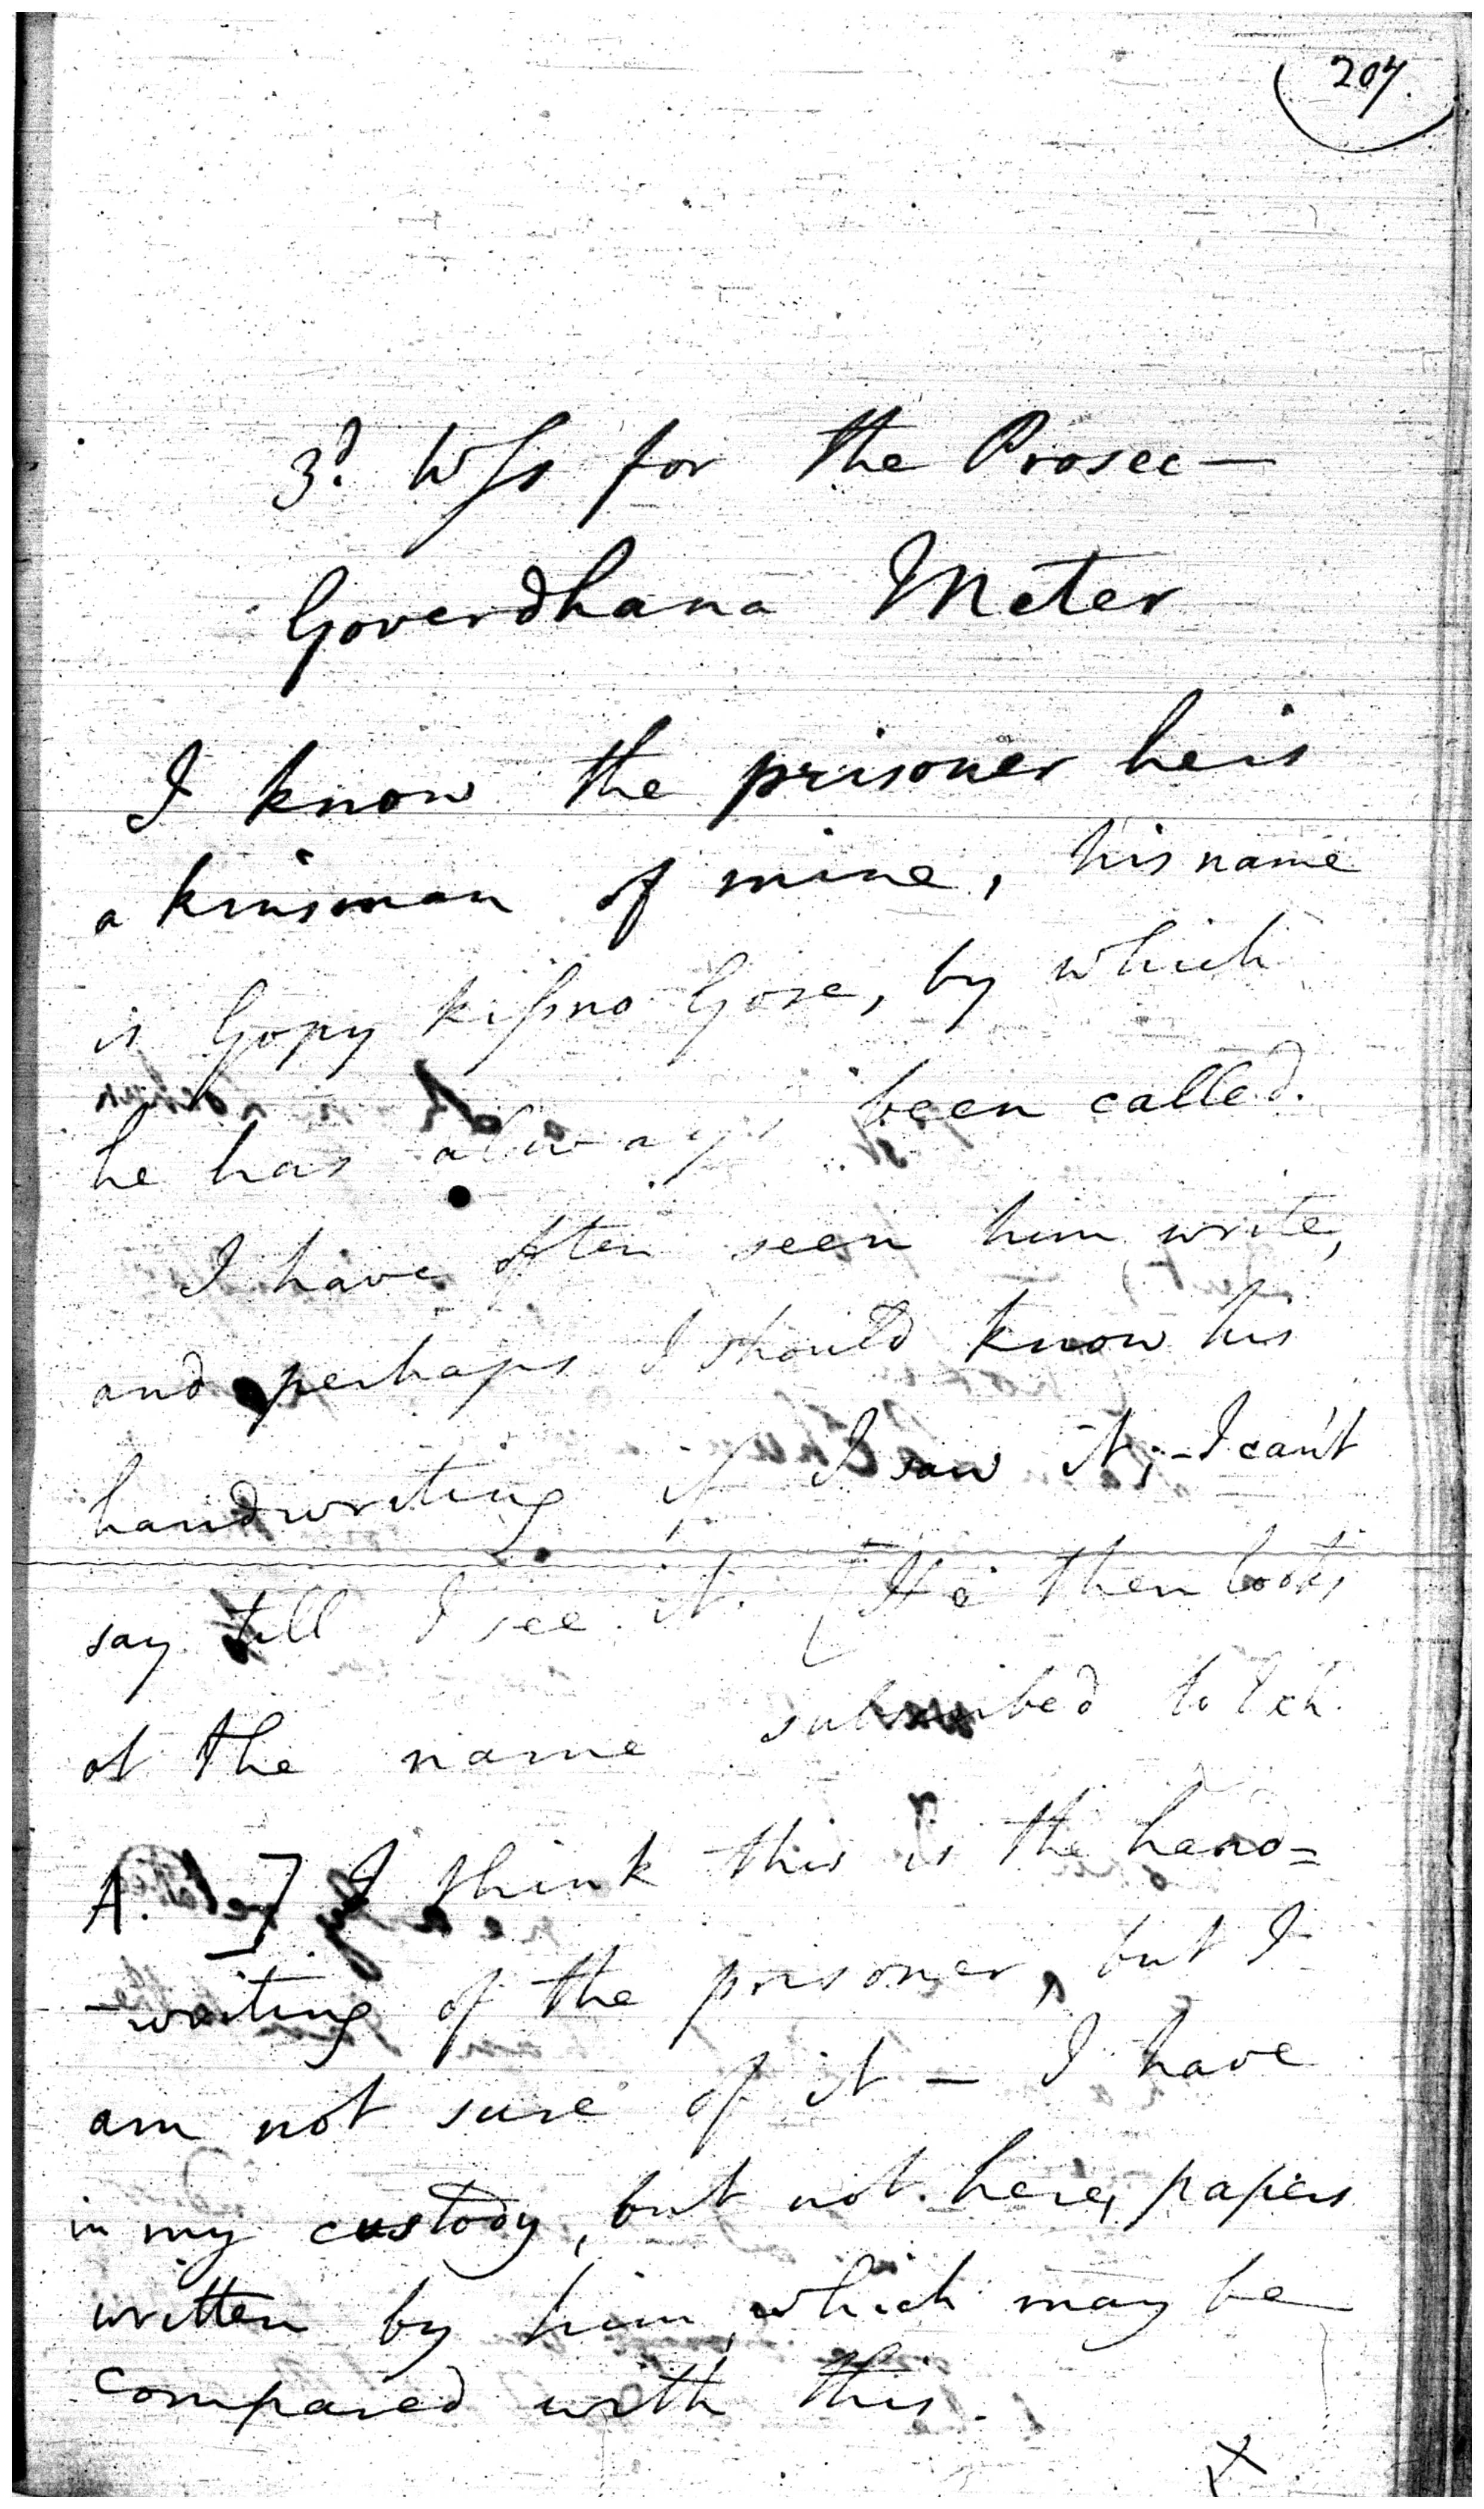 207.
3d. Wſs for the Prosec—
Goverdhana Meter
I know the prisoner he is
a kinsman of mine, his name
is Gopy kiſsno Gose, by which
he has always been called.
I have often seen him write,
and perhaps I should know his
handwriting if I saw it; - I can't
say till I see it. [He then looks
at the name subscribed to Exh.
A.] I think this is the hand=
-writing of the prisoner, but I
am not sure of it — I have
in my custody, but not here, papers
written by him, which may be
compared with this.
X